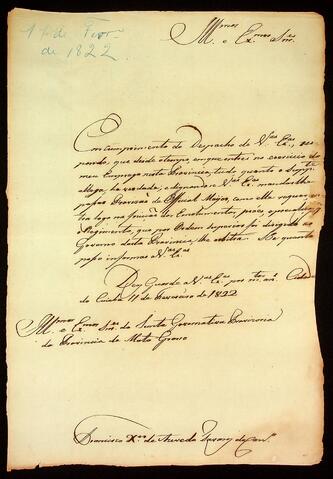 11 de Fevr.º
de 1822
Ill.mos e Ex.mos Snr.es
Em cumprimento do Despacho de V.as Ex.as, res-
pondo, que desde o tempo, em que entrei no exercicio do
meu Emprego nesta Provincia, tudo quanto o Supp.te
allega, he verdade, e dignando-se V.as Ex.as mandar-lhe
passar Provisão de Official Maior, como elle requer,
Regimento, que por Ordem superior foi dirigido ao
Governo desta Provincia, lhe He quanto
posso informar a V.as Ex.as
Deos Guarde a V.as Ex.as por m.s an.s Cidade
de Cuiabá 11 de Fevereiro de 1822
Ill.mos e Ex.mos Snr.es da Junta Governativa Provizoria
da Provincia de Mato Groso
Francisco X.er de Azevedo